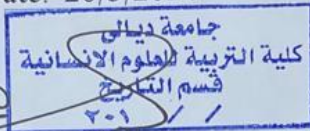 جامعة ديالى
كلية التربية للعلوم الانسانية
قسم التاريخ
/ / ٢٠١